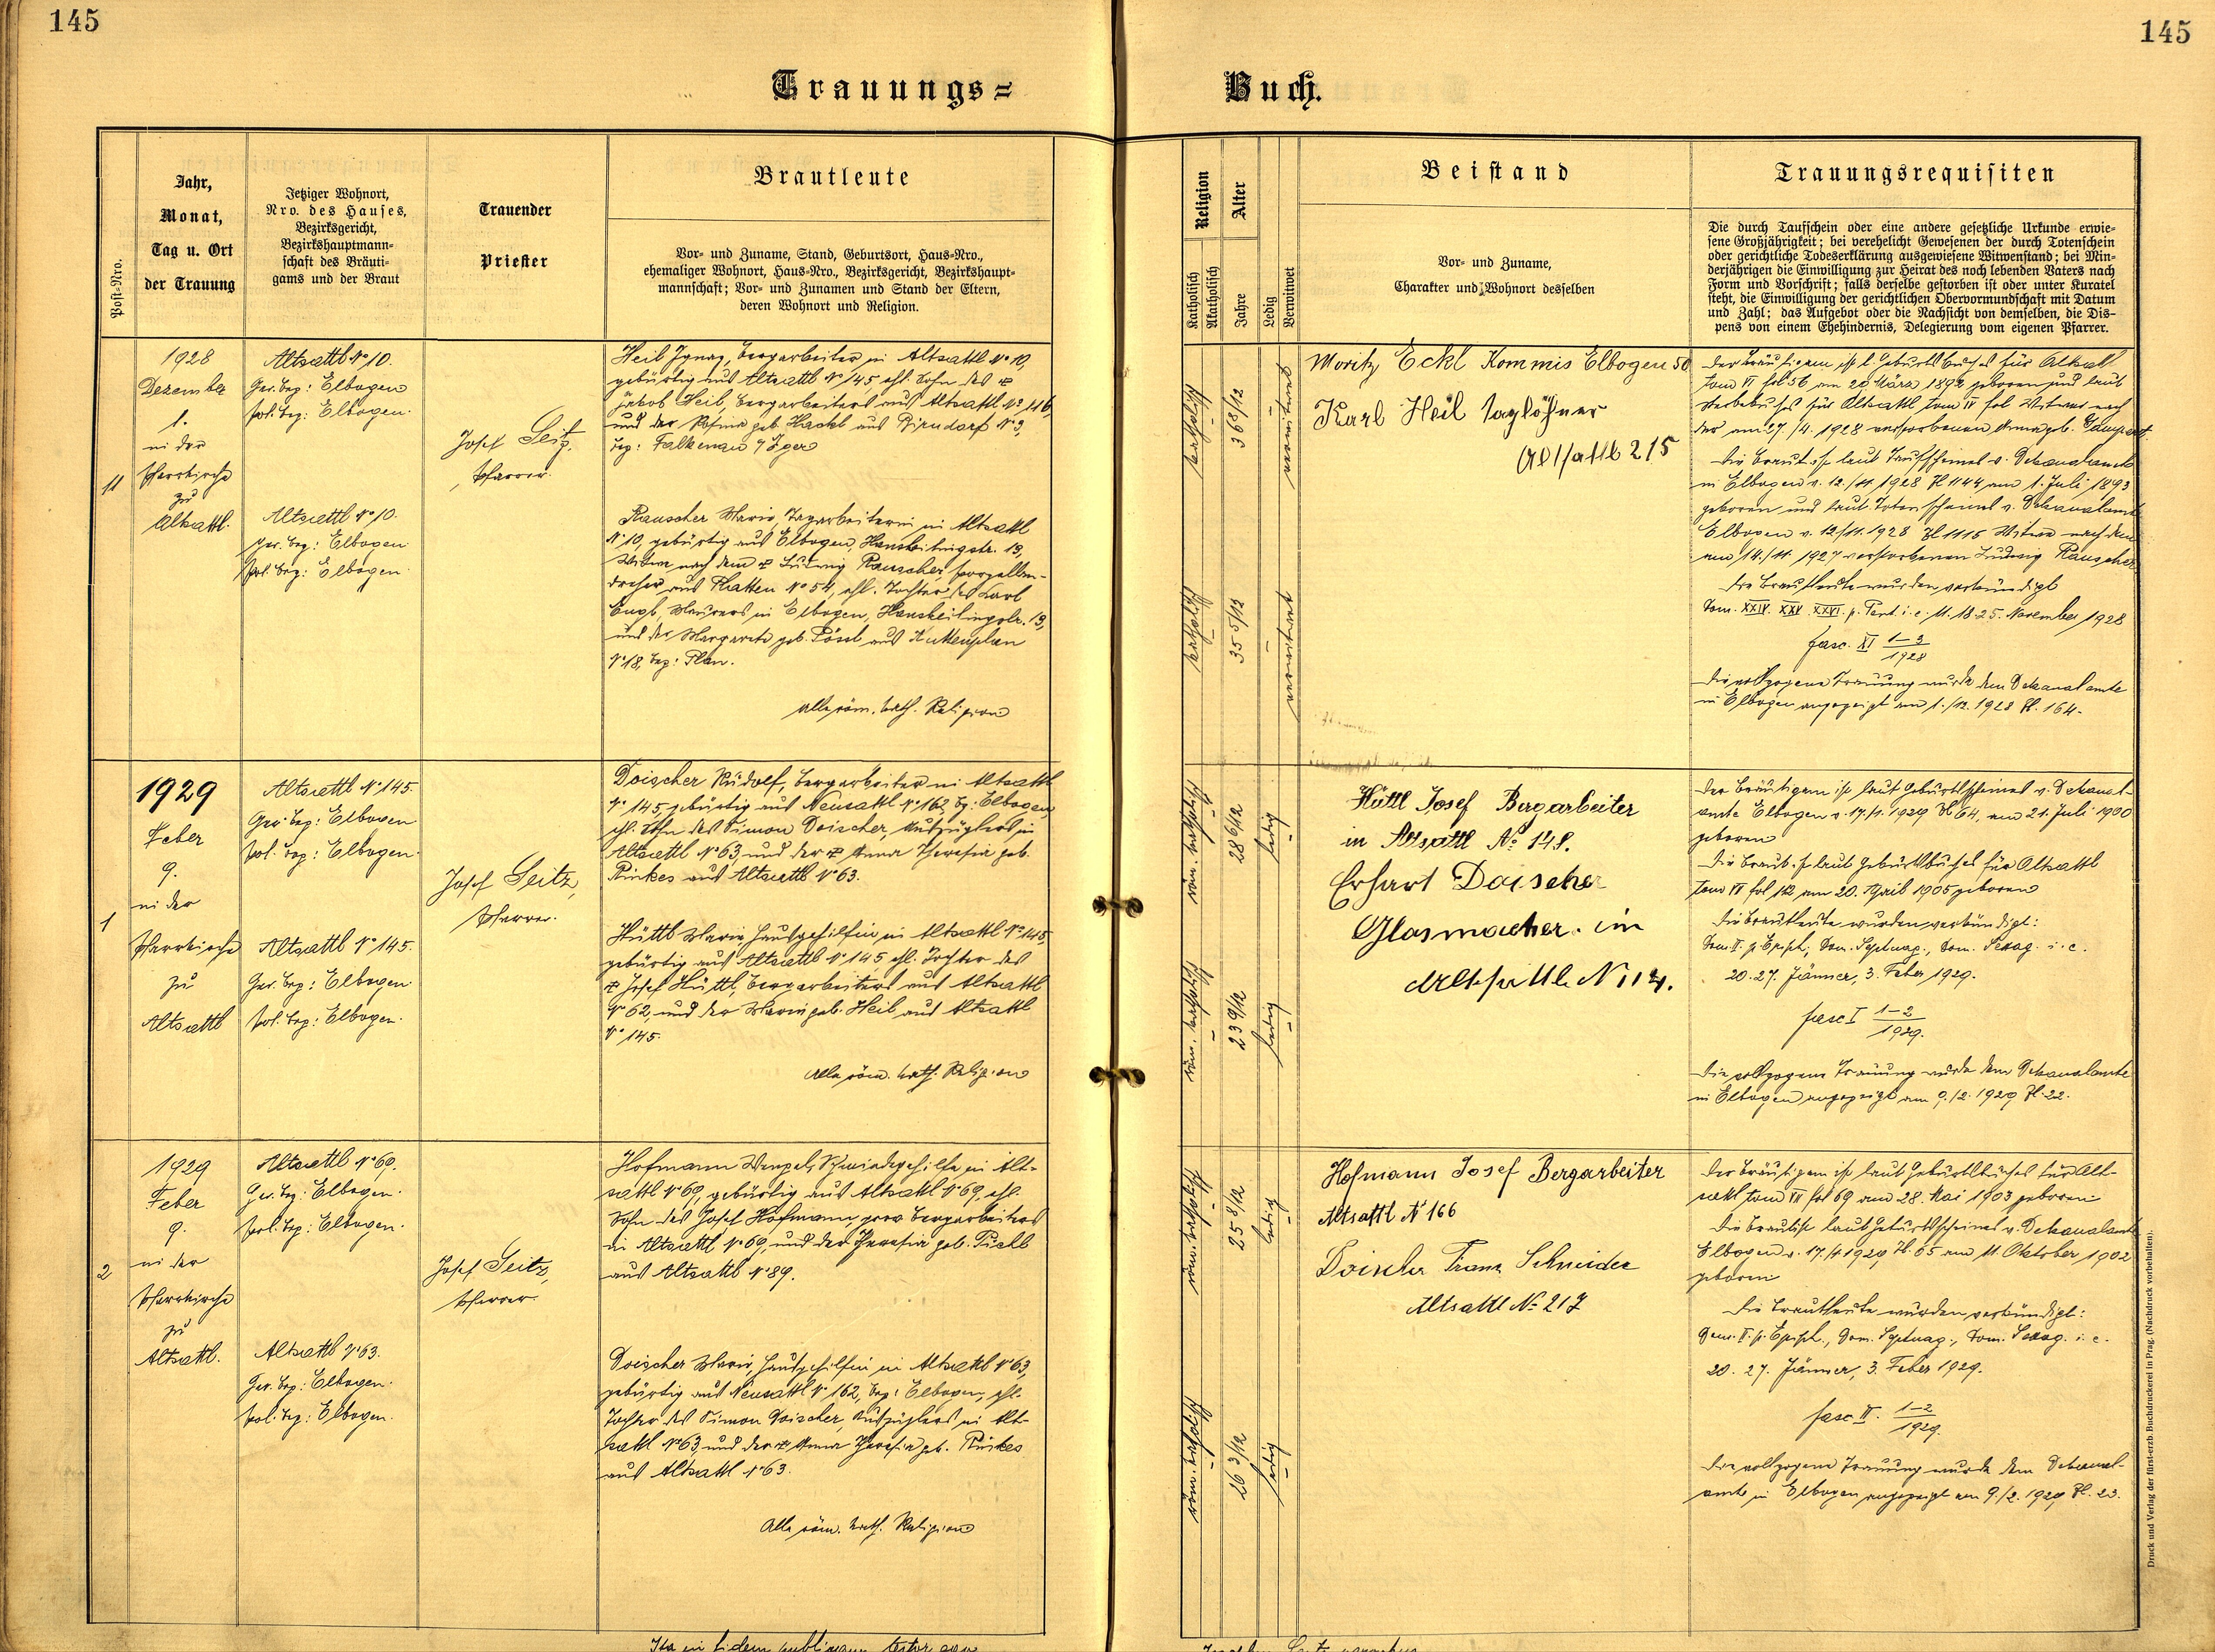 145
145
Trauungs=
Buch.
Post=Nro.
Jahr,
Monat,
Tag u. Ort
der Trauung
Jetziger Wohnort,
Nro. des Hauses,
Bezirksgericht,
Bezirkshauptmann=
schaft des Bräuti=
gams und der Braut
Trauender
Priester
Brautleute
Vor= und Zuname, Stand, Geburtsort, Haus=Nro.,
ehemaliger Wohnort, Haus=Nro., Bezirksgericht, Bezirkshaupt=
mannschaft; Vor= und Zunamen und Stand der Eltern,
deren Wohnort und Religion.
Religion
Katholisch
Akatholisch
Alter
Jahre
Ledig
Verwitwet
Beistand
Vor= und Zuname,
Charakter und Wohnort desselben
Trauungsrequisiten
Die durch Taufschein oder eine andere gesetzliche Urkunde erwie=
sene Großjährigkeit; bei verehelicht Gewesenen der durch Totenschein
oder gerichtliche Todeserklärung ausgewiesene Witwenstand; bei Min=
derjährigen die Einwilligung zur Heirat des noch lebenden Vaters nach
Form und Vorschrift; falls derselbe gestorben ist oder unter Kuratel
steht, die Einwilligung der gerichtlichen Obervormundschaft mit Datum
und Zahl; das Aufgebot oder die Nachsicht von demselben, die Dis=
pens von einem Ehehindernis, Delegierung vom eigenen Pfarrer.
11
1928
Dezember
1.
in der
Pfarrkirche
zu
Altsattl.
Altsattl No 10.
Ger. bez: Elbogen
pol. bez: Elbogen.
Altsattl No 10.
ger. bez: Elbogen
pol. bez: Elbogen.
Josef Seitz,
Pfarrer.
Heil Ignaz, Bergarbeiter in Altsattl No 10,
gebürtig aus Altsattl No 145, ehl. Sohn des
Jakob Heil, Bergarbeiters aus Altsattl No 116,
und der Rosina geb. Hackl aus Birndorf No 3,
bez: Falkenau a/Eger
Rauscher Marie, Tagarbeiterin in Altsattl
No 10, gebürtig aus Elbogen, Hansheilingstr. 13,
Witwe nach dem Ludwig Rauscher, Porzellan-
dreher aus Platten No 54, ehl. Tochter des Karl
Engl, Maurers in Elbogen, Hansheilingstr. 13,
und der Margareta geb. Pössl aus Kuttenplan
No 18, bez: Plan.
Alle röm. kath. Religion
katholisch
36 8/12
verwitwet
katholisch
35 5/12
verwitwet
Moritz Eckl Kommis Elbogen 50
Karl Heil Taglöhner
Altsattl 215
Der Bräutigam ist l. Geburtsbuches für Altsattl
tom VI fol 56 am 20 März 1892 geboren und laut
Sterbebuches für Altsattl tom IV fol Witwer nach
der am 27./4. 1928 verstorbenen Anna geb.
Die Braut ist laut Taufscheines v. Dekanalamte
in Elbogen v. 12./11. 1928 Zl 1144 am 1. Juli 1893
geboren und laut Totenscheines v. Dekanalamte
Elbogen v. 12./11. 1928 Zl 1115 Witwe nach dem
am 14./11. 1927 verstorbenen Ludwig Rauscher.
Die Brautleute wurden verkündigt
Dom. XXIV. XXV. XXVI. p. Pent. i. e. 11. 18. 25. November 1928
fasc. XI 1-3/1928
Die vollzogene Trauung wurde dem Dekanalamte
in Elbogen angezeigt am 1./12. 1928 Zl. 164.
1
1929
Feber
9.
in der
Pfarrkirche
zu
Altsattl
Altsattl No 145.
Ger. bez: Elbogen
pol. bez: Elbogen.
Altsattl No 145.
Ger. bez: Elbogen.
pol. bez: Elbogen.
Josef Seitz,
Pfarrer.
Doischer Rudolf, Bergarbeiter in Altsattl
No 145, gebürtig aus Neusattl No 162 bz: Elbogen,
ehl. Sohn des Simon Doischer, Auszüglers in
Altsattl No 63, und der Anna Theresia geb.
Rinkes aus Altsattl No 63.
Hüttl Marie, Hausgehilfin in Altsattl No 145,
gebürtig aus Altsattl No 145, ehl. Tochter des
Josef Hüttl, Bergarbeiters aus Altsattl
No 62, und der Marie geb. Heil aus Altsattl
No 145.
Alle röm. kath. Religion
röm. katholisch
28 6/12
ledig
röm. katholisch
23 9/12
ledig
Hüttl Josef Bergarbeiter
in Altsattl No 148.
Erhart Doischer
Glasmacher. in
Altsattl N 114.
Der Bräutigam ist laut Geburtsscheines v. Dekanal-
amte Elbogen v. 17./1. 1929 Zl 64, am 21. Juli 1900
geboren
Die Braut ist laut Geburtsbuches für Altsattl
tom VI fol 182, am 20. April 1905 geboren
Die Brautleute wurden verkündigt:
Dom. II. p. Epiph., Dom. Septuag., Dom. Sexag. i. e.
20. 27. Jänner, 3. Feber 1929.
fasc I 1-2/1929.
Die vollzogene Trauung wurde dem Dekanalamte
in Elbogen angezeigt am 9./2. 1929 Zl. 22.
2
1929
Feber
9.
in der
Pfarrkirche
zu
Altsattl.
Altsattl No 69.
Ger. bez: Elbogen.
pol. bez: Elbogen.
Altsattl No 63.
Ger. bez: Elbogen.
pol. bez: Elbogen.
Josef Seitz,
Pfarrer.
Hofmann Wenzel, Schmiedgehilfe in Alt-
sattl No 69, gebürtig aus Altsattl No 69, ehl.
Sohn des Josef Hofmann, prov. Bergarbeiters
in Altsattl No 69, und der Theresia geb. Pichl
aus Altsattl No 89.
Doischer Marie, Hausgehilfin in Altsattl No 63,
gebürtig aus Neusattl No 162, bez: Elbogen, ehl.
Tochter des Simon Doischer, Auszüglers in Alt-
sattl No 63, und der Anna Theresia geb. Rinkes
aus Altsattl No 63.
Alle röm. kath. Religion
röm. katholisch
25 8/12
ledig
röm. katholisch
26 3/12
ledig
Hofmann Josef Bergarbeiter
Altsattl N 166
Doischer Franz Schneider
Altsattl No 217
Der Bräutigam ist laut Geburtsbuches für Alt-
sattl tom VI fol 69 am 28. Mai 1903 geboren
Die Braut ist laut Geburtsscheines v. Dekanalamte
Elbogen v. 17./1 1929 Zl. 65 am 11. Oktober 1902
geboren
Die Brautleute wurden verkündigt:
Dom. II. p. Epiph., Dom. Septuag., Dom. Sexag. i. e.
20. 27. Jänner, 3. Feber 1929.
fasc II. 1-2/1929.
Die vollzogene Trauung wurde dem Dekanal-
amte in Elbogen angezeigt am 9./2. 1929 Zl. 23.
Druck und Verlag der fürst=erzb. Buchdruckerei in Prag. (Nachdruck vorbehalten).